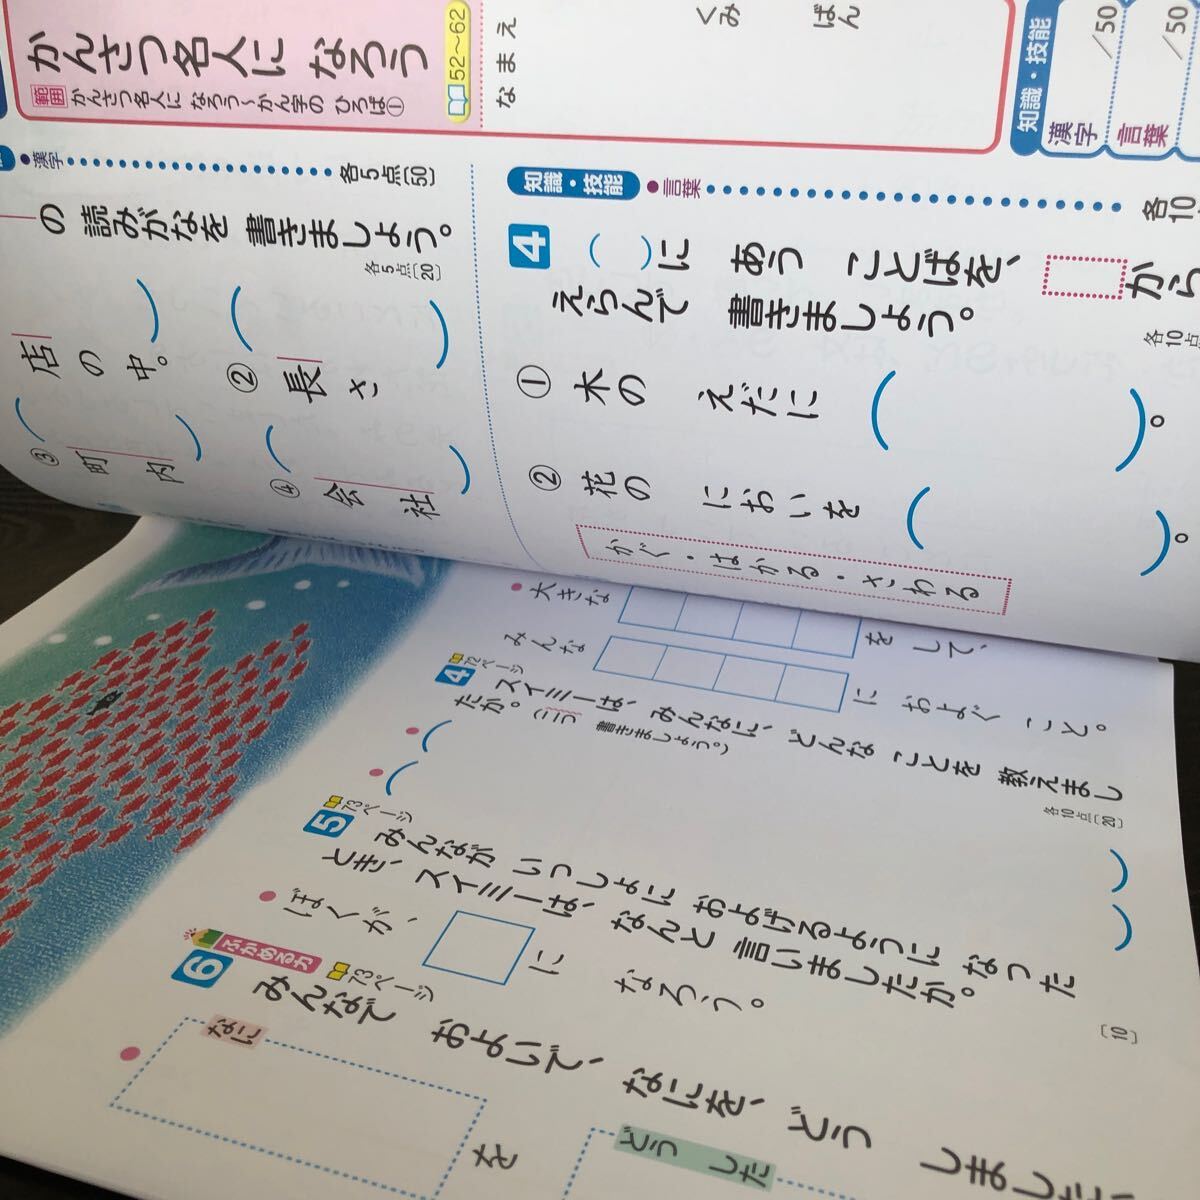 かんさつ名人に なろう
範囲 かんさつ名人に なろう〜かん字の ひろば①
52〜62
なまえ
くみ
ばん
知識・技能
漢字
／50
言葉
／50
漢字
各5点〔50〕
の 読みがなを 書きましょう。
各5点〔20〕
店の 中。
② 長さ
③ 町内
④ 会社
知識・技能 言葉
各10
4 （ ）に あう ことばを、 から
えらんで 書きましょう。
各10点
① 木の えだに（ ）。
② 花の においを（ ）。
かぐ・はかる・さわる
大きな を して、
みんな に およぐ こと。
4 72ページ スイミーは、みんなに、どんな ことを 教えまし
たか。（二つ 書きましょう。）
各10点〔20〕
5 73ページ みんなが いっしょに およげるように なった
とき、スイミーは、なんと 言いましたか。
〔10〕
ぼくが、 に なろう。
6 ふかめる力 73ページ みんなで およいで、なにを、どう しました
なに
を
どう した